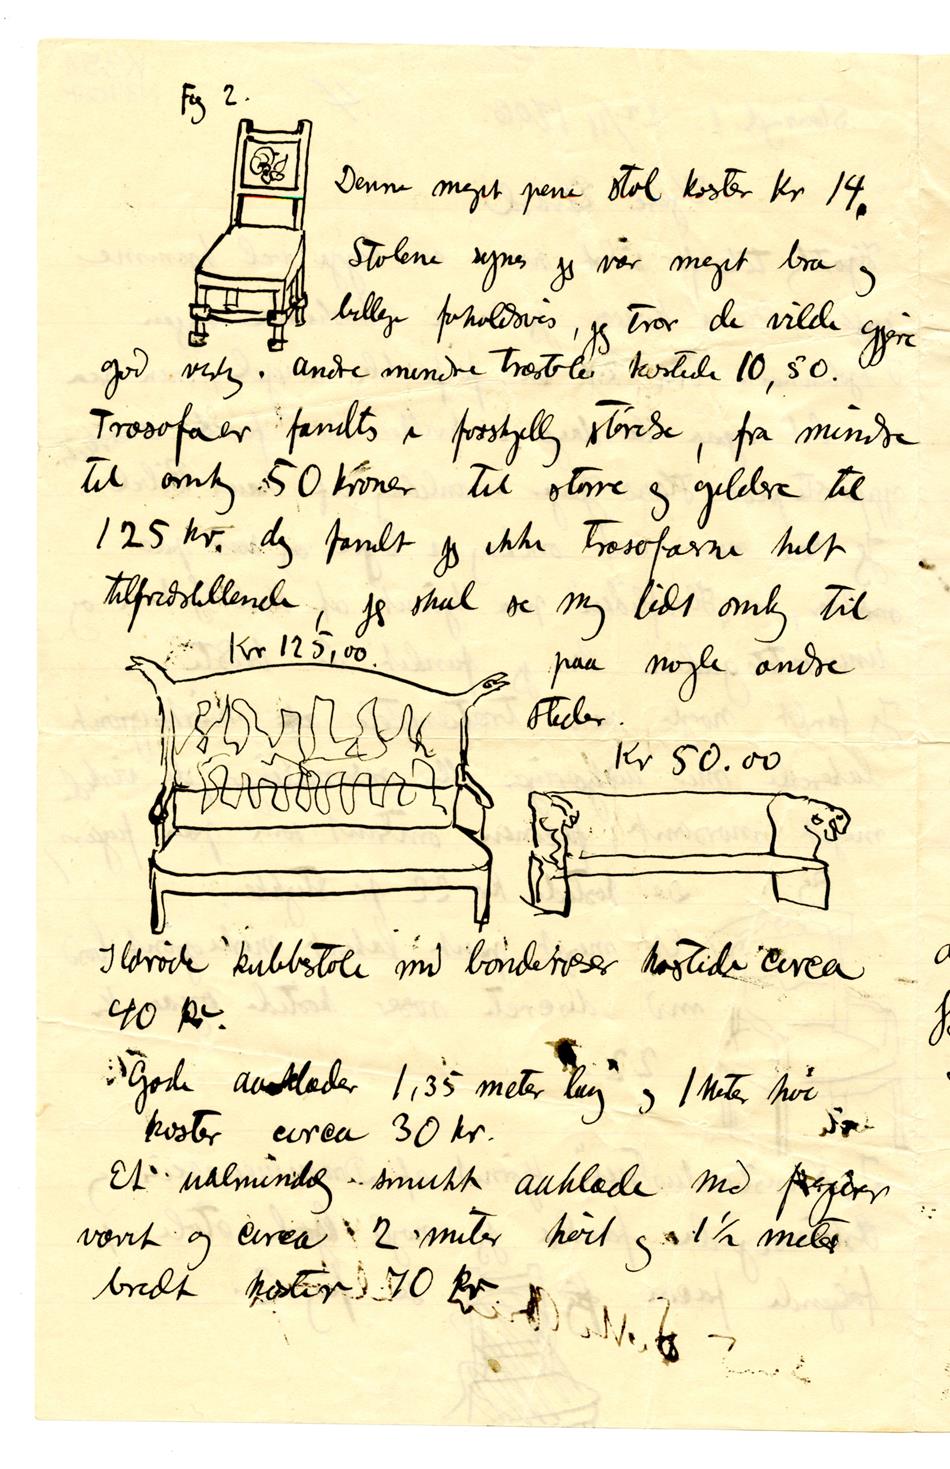 Fig 2.
Denne meget pene stol koster Kr 14.
Stolene synes jeg var meget bra og
billige forholdsvis, jeg tror de vilde gjøre
god virkg. andre mindre træstole kostede 10,50.
Træsofaer fandtes i forskjellig størelse, fra mindre
til omkg 50 Kroner til større og gildere til
125 kr. dog fandt jeg ikke træsofaerne helt
tilfredstillende, jeg skal se mig lidt omkg til
Kr 125,00.
paa nogle andre
steder.
Kr 50.00
Ildrøde kubbstole med bonderoser kostede circa
40 Kr.
Gode aaklæder 1,35 meter lang og 1 Meter høi
koster circa 30 kr.
Et ualmindelig smukt aaklæde med figurer
været og circa 2 meter høit og 1½ meter
bredt koster 70 kr